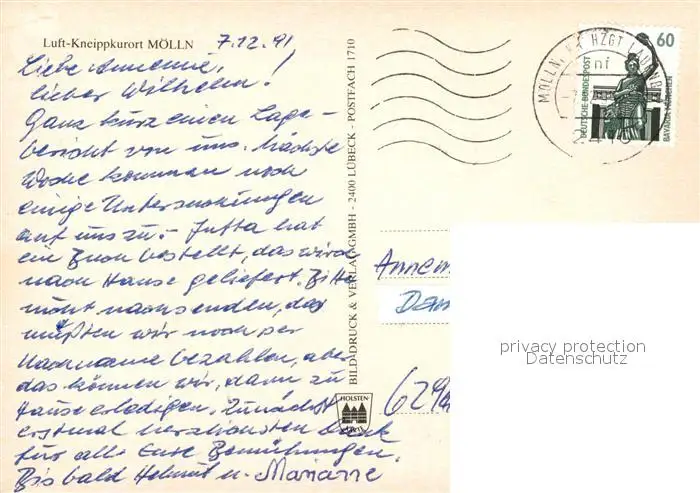 Luft-Kneippkurort MÖLLN
7.12.91
Liebe Annemie,
lieber Wilhelm!
Ganz kurz einen Lage-
bericht von uns. Nächste
Woche kommen noch
einige Untersuchungen
auf uns zu. - Jutta hat
ein Buch bestellt, das wird
nach Hause geliefert. Bitte
nicht nachsenden, das
müßten wir noch per
Nachnahme bezahlen, aber
das können wir, dann zu
Hause erledigen. Zunächst
erstmal herzlichsten Dank
für alle Eure Bemühungen.
Bis bald Helmut u. Marianne
BILD+DRUCK & VERLAG GMBH - 2400 LÜBECK - POSTFACH 1710
HOLSTEN
60
DEUTSCHE BUNDESPOST
BAVARIA MÜNCHEN
MÖLLN, KR HZGT LAUENB
2410
Annem
Dan
624
privacy protection
Datenschutz